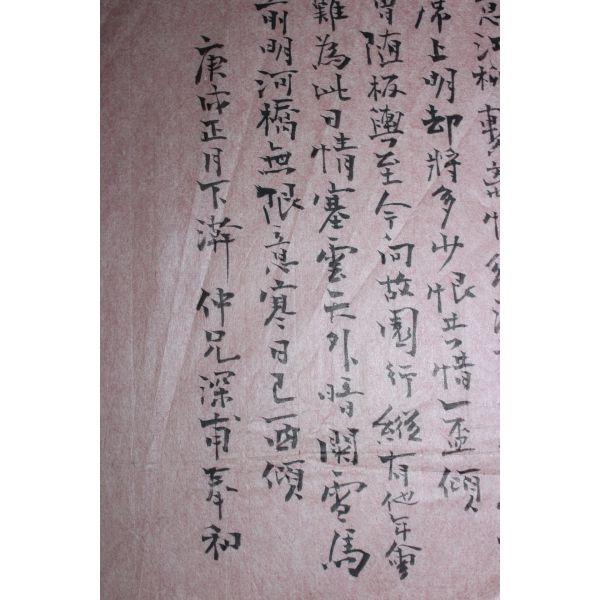 江
席上明却將多少恨共惜一盃傾
曾随板輿至今向故園行縱有他年會
難為此日情塞雲天外暗關雪馬
前明河橋無限意寒日已西傾
庚戌正月下澣 仲兄深甫奉和